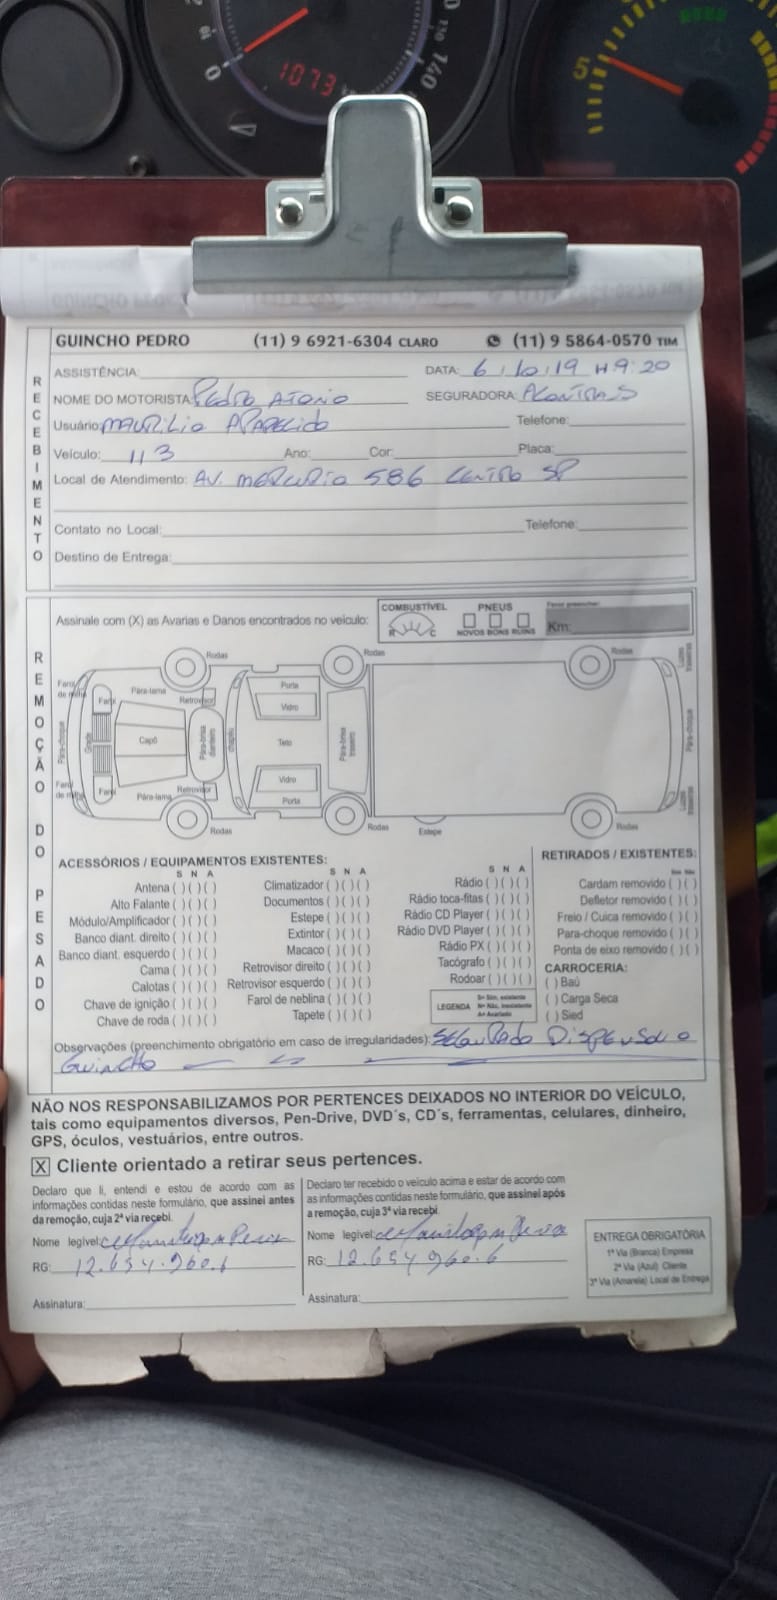 GUINCHO PEDRO (11) 9 6921-6304 CLARO (11) 9 5864-0570 TIM
RECEBIMENTO
ASSISTÊNCIA: DATA: 6/10/19 H 9:20
NOME DO MOTORISTA: PEDRO ATONIO SEGURADORA:
Usuário: MAURILIO APARECIDO Telefone:
Veículo: 113 Ano: Cor: Placa:
Local de Atendimento: AV. MERCURIO 586 CENTRO SP
Contato no Local: Telefone:
Destino de Entrega:
REMOÇÃO DO PESADO
Assinale com (X) as Avarias e Danos encontrados no veículo:
COMBUSTÍVEL
R C
PNEUS
NOVOS BONS RUINS
Favor preencher:
Km:
Rodas Rodas Rodas
Farol de milha Farol Pára-lama Retrovisor Porta Vidro
Pára-choque Grade Capô Pára-brisa dianteiro chapéu Teto Pára-brisa traseiro Pára-choque
Luzes traseiras
Luzes traseiras
Farol de milha Farol Pára-lama Retrovisor Vidro Porta
Rodas Rodas Estepe Rodas
ACESSÓRIOS / EQUIPAMENTOS EXISTENTES:
S N A
Antena ( ) ( ) ( )
Alto Falante ( ) ( ) ( )
Módulo/Amplificador ( ) ( ) ( )
Banco diant. direito ( ) ( ) ( )
Banco diant. esquerdo ( ) ( ) ( )
Cama ( ) ( ) ( )
Calotas ( ) ( ) ( )
Chave de ignição ( ) ( ) ( )
Chave de roda ( ) ( ) ( )
S N A
Climatizador ( ) ( ) ( )
Documentos ( ) ( ) ( )
Estepe ( ) ( ) ( )
Extintor ( ) ( ) ( )
Macaco ( ) ( ) ( )
Retrovisor direito ( ) ( ) ( )
Retrovisor esquerdo ( ) ( ) ( )
Farol de neblina ( ) ( ) ( )
Tapete ( ) ( ) ( )
S N A
Rádio ( ) ( ) ( )
Rádio toca-fitas ( ) ( ) ( )
Rádio CD Player ( ) ( ) ( )
Rádio DVD Player ( ) ( ) ( )
Rádio PX ( ) ( ) ( )
Tacógrafo ( ) ( ) ( )
Rodoar ( ) ( ) ( )
LEGENDA
S= Sim, existente
N= Não, inexistente
A= Avariado
RETIRADOS / EXISTENTES:
Sim Não
Cardam removido ( ) ( )
Defletor removido ( ) ( )
Freio / Cuica removido ( ) ( )
Para-choque removido ( ) ( )
Ponta de eixo removido ( ) ( )
CARROCERIA:
( ) Baú
( ) Carga Seca
( ) Sied
Observações (preenchimento obrigatório em caso de irregularidades): SEGURADO DISPENSOU O
GUINCHO
NÃO NOS RESPONSABILIZAMOS POR PERTENCES DEIXADOS NO INTERIOR DO VEÍCULO,
tais como equipamentos diversos, Pen-Drive, DVD´s, CD´s, ferramentas, celulares, dinheiro,
GPS, óculos, vestuários, entre outros.
X Cliente orientado a retirar seus pertences.
Declaro que li, entendi e estou de acordo com as
informações contidas neste formulário, que assinei antes
da remoção, cuja 2ª via recebi.
Nome legível:
RG: 12.654.960.6
Assinatura:
Declaro ter recebido o veículo acima e estar de acordo com
as informações contidas neste formulário, que assinei após
a remoção, cuja 3ª via recebi.
Nome legível:
RG: 12.654 960.6
Assinatura:
ENTREGA OBRIGATÓRIA
1ª Via (Branca) Empresa
2ª Via (Azul) Cliente
3ª Via (Amarela) Local de Entrega